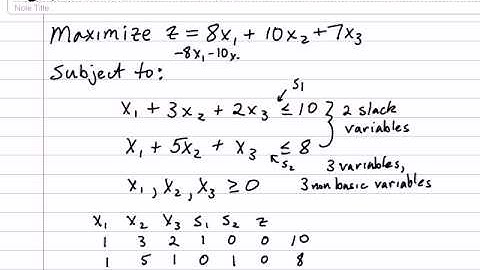 Note Title
Maximize z = 8x₁ + 10x₂ + 7x₃
-8x₁ -10x.
Subject to:
S₁
x₁ + 3x₂ + 2x₃ ≤ 10 } 2 slack
variables
x₁ + 5x₂ + x₃ ≤ 8
S₂ 3 variables,
x₁, x₂, x₃ ≥ 0 3 non basic variables
x₁ x₂ x₃ S₁ S₂ z
1 3 2 1 0 0 10
1 5 1 0 1 0 8